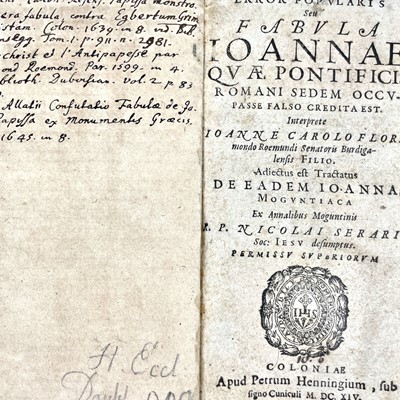 monstro.
sa fabula, contra Egbertum Grim
stam. Colon. 1639. in 8. vid. Bibl.
Tom. 1. p. 911. n. 2981.
christ et l'Antipapesse par
ond Roemond. Par. 1599. in 4.
Biblioth. Duboisian. Vol. 2. p 83
Allatii Confutatio Fabulae de Jo.
Papissa ex Monumentis Graecis.
1645. in 8.
H. Eccl
ERROR POPULARIS
Seu
FABULA
IOANNAE
QVÆ PONTIFICIS
ROMANI SEDEM OCCV-
PASSE FALSO CREDITA EST.
Interprete
IOANNE CAROLO FLORI
mondo Roemundi Senatoris Burdiga-
lensis FILIO.
Adiectus est Tractatus
DE EADEM IOANNA
MOGVNTIACA
Ex Annalibus Moguntinis
R. P. NICOLAI SERARI
Soc: IESV desumptus.
PERMISSV SVPERIORVM
IHS
COLONIAE
Apud Petrum Henningium, sub
signo Cuniculi M. DC. XIV.